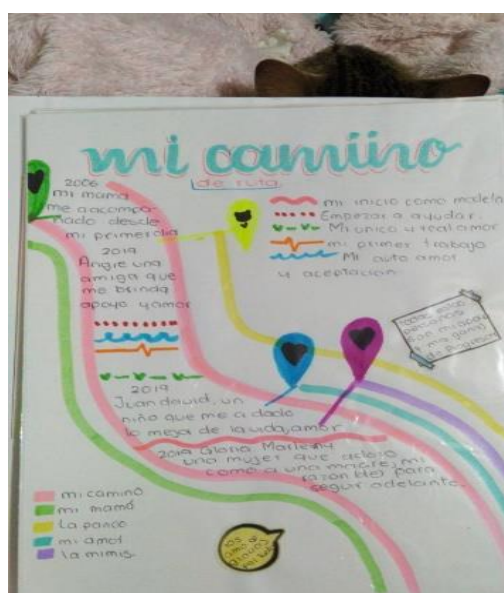 mi camiino
de ruta
2006
mi mama
me a acompa
ñado desde
mi primer dia
2019
Angie una
amiga que
me brinda
apoyo y amor
mi inicio como modelo
Empezar a ayudar.
Mi unico y real amor
mi primer trabajo
Mi auto amor
y aceptación.
todas estas
personas
son mi
mis ganas
de
2019
Juan david, un
niño que me a dado
lo mejor de la vida, amor
2019 Gloria, Marleny
una mujer que adoro
como a una madre, mi
razon para
seguir adelante.
mi camino
mi mamá
la parce
mi amor
la mimis
los
amo